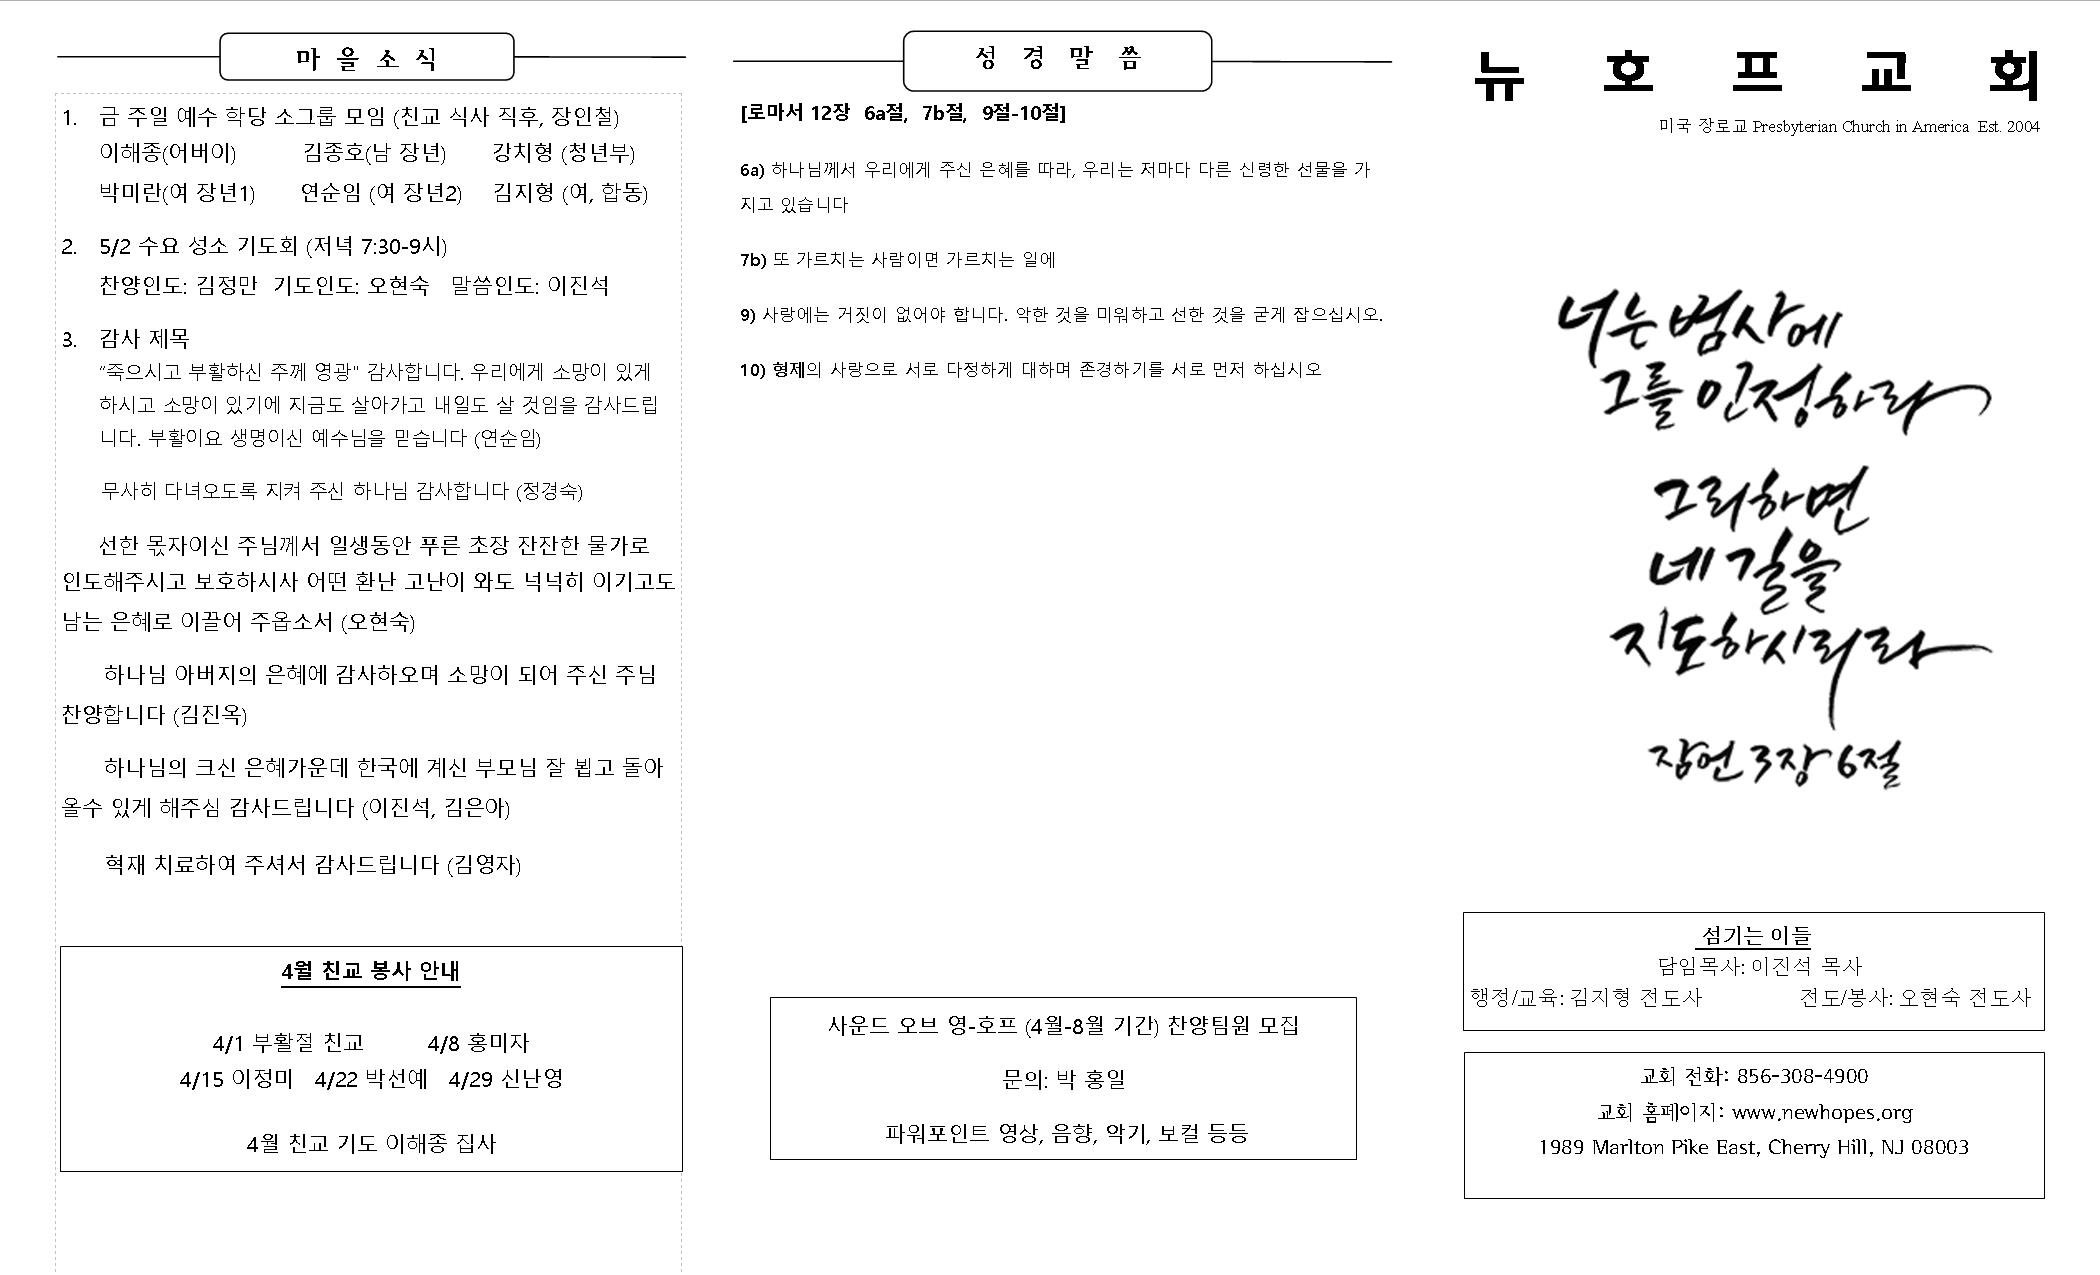 마 을 소 식
1. 금 주일 예수 학당 소그룹 모임 (친교 식사 직후, 장인철)
이해종(어버이) 김종호(남 장년) 강치형 (청년부)
박미란(여 장년1) 연순임 (여 장년2) 김지형 (여, 합동)
2. 5/2 수요 성소 기도회 (저녁 7:30-9시)
찬양인도: 김정만 기도인도: 오현숙 말씀인도: 이진석
3. 감사 제목
"죽으시고 부활하신 주께 영광" 감사합니다. 우리에게 소망이 있게
하시고 소망이 있기에 지금도 살아가고 내일도 살 것임을 감사드립
니다. 부활이요 생명이신 예수님을 믿습니다 (연순임)
무사히 다녀오도록 지켜 주신 하나님 감사합니다 (정경숙)
선한 몫자이신 주님께서 일생동안 푸른 초장 잔잔한 물가로
인도해주시고 보호하시사 어떤 환난 고난이 와도 넉넉히 이기고도
남는 은혜로 이끌어 주옵소서 (오현숙)
하나님 아버지의 은혜에 감사하오며 소망이 되어 주신 주님
찬양합니다 (김진옥)
하나님의 크신 은혜가운데 한국에 계신 부모님 잘 뵙고 돌아
올수 있게 해주심 감사드립니다 (이진석, 김은아)
혁재 치료하여 주셔서 감사드립니다 (김영자)
4월 친교 봉사 안내
4/1 부활절 친교 4/8 홍미자
4/15 이정미 4/22 박선예 4/29 신난영
4월 친교 기도 이해종 집사
성 경 말 씀
[로마서 12장 6a절, 7b절, 9절-10절]
6a) 하나님께서 우리에게 주신 은혜를 따라, 우리는 저마다 다른 신령한 선물을 가
지고 있습니다
7b) 또 가르치는 사람이면 가르치는 일에
9) 사랑에는 거짓이 없어야 합니다. 악한 것을 미워하고 선한 것을 굳게 잡으십시오.
10) 형제의 사랑으로 서로 다정하게 대하며 존경하기를 서로 먼저 하십시오
사운드 오브 영-호프 (4월-8월 기간) 찬양팀원 모집
문의: 박 홍일
파워포인트 영상, 음향, 악기, 보컬 등등
뉴 호 프 교 회
미국 장로교 Presbyterian Church in America Est. 2004
너는 범사에
그를 인정하라
그리하면
네 길을
지도하시리라
잠언 3장 6절
섬기는 이들
담임목사: 이진석 목사
행정/교육: 김지형 전도사 전도/봉사: 오현숙 전도사
교회 전화: 856-308-4900
교회 홈페이지: www.newhopes.org
1989 Marlton Pike East, Cherry Hill, NJ 08003